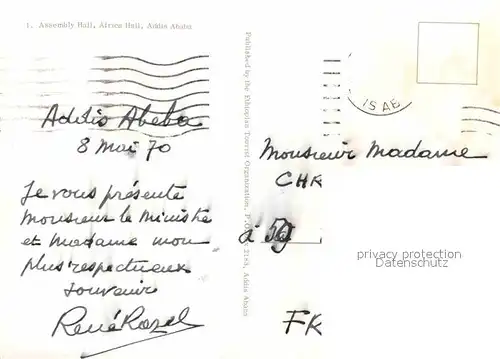 1. Assembly Hall, Africa Hall, Addis Ababa
Addis Abeba
8 mai 70
Je vous présente
Monsieur le Ministre
et Madame mon
plus respectueux
souvenir
Published by the Ethiopian Tourist Organization, P.O. 2183, Addis Ababa
IS AB
Monsieur Madame
CHR
à 59
FR
privacy protection
Datenschutz